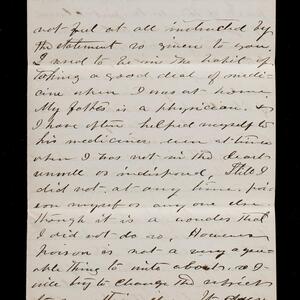 not feel at all instructed by
the statement so given to you.
I used to be in the habit of
taking a good deal of medi-
cine when I was at home
My father is a physician &
I have often helped myself to
his medicines even at times
when I was not in the least
unwell or indisposed, Still I
did not at any time poi-
son myself or any one else
though it is a wonder that
I did not do so. However
poison is not a very agree-
able thing to write about, so I
will try to change the subject
to